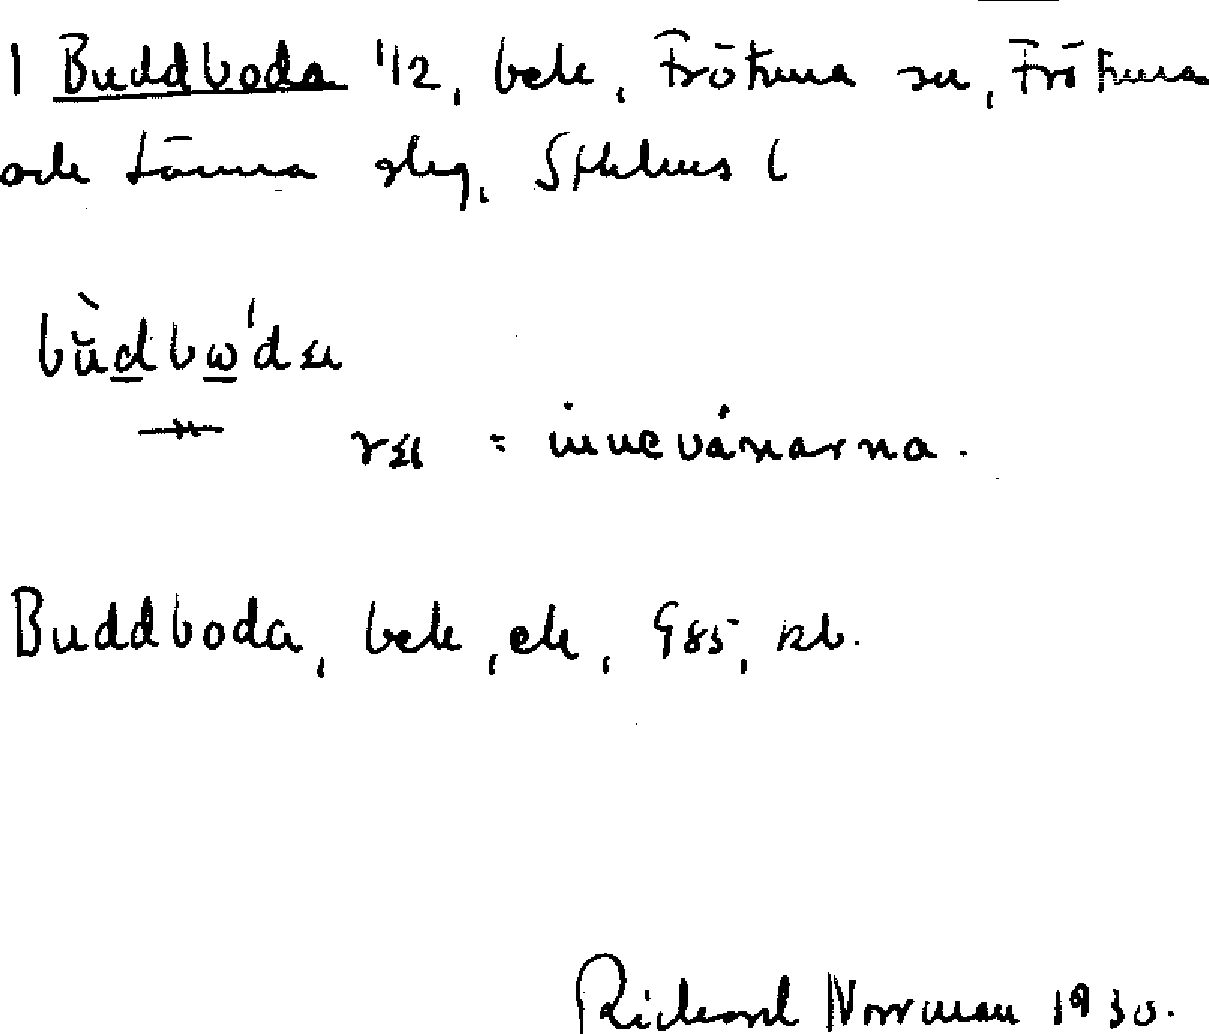 1 Buddboda 1/2, bek, Frötuna sn, Frötuna
och Länna slg, Sthlms l
bùdbω'da
ra = innevånarna.
Buddboda, bek, ek, G85, kb.
Rickard Norrman 1930.